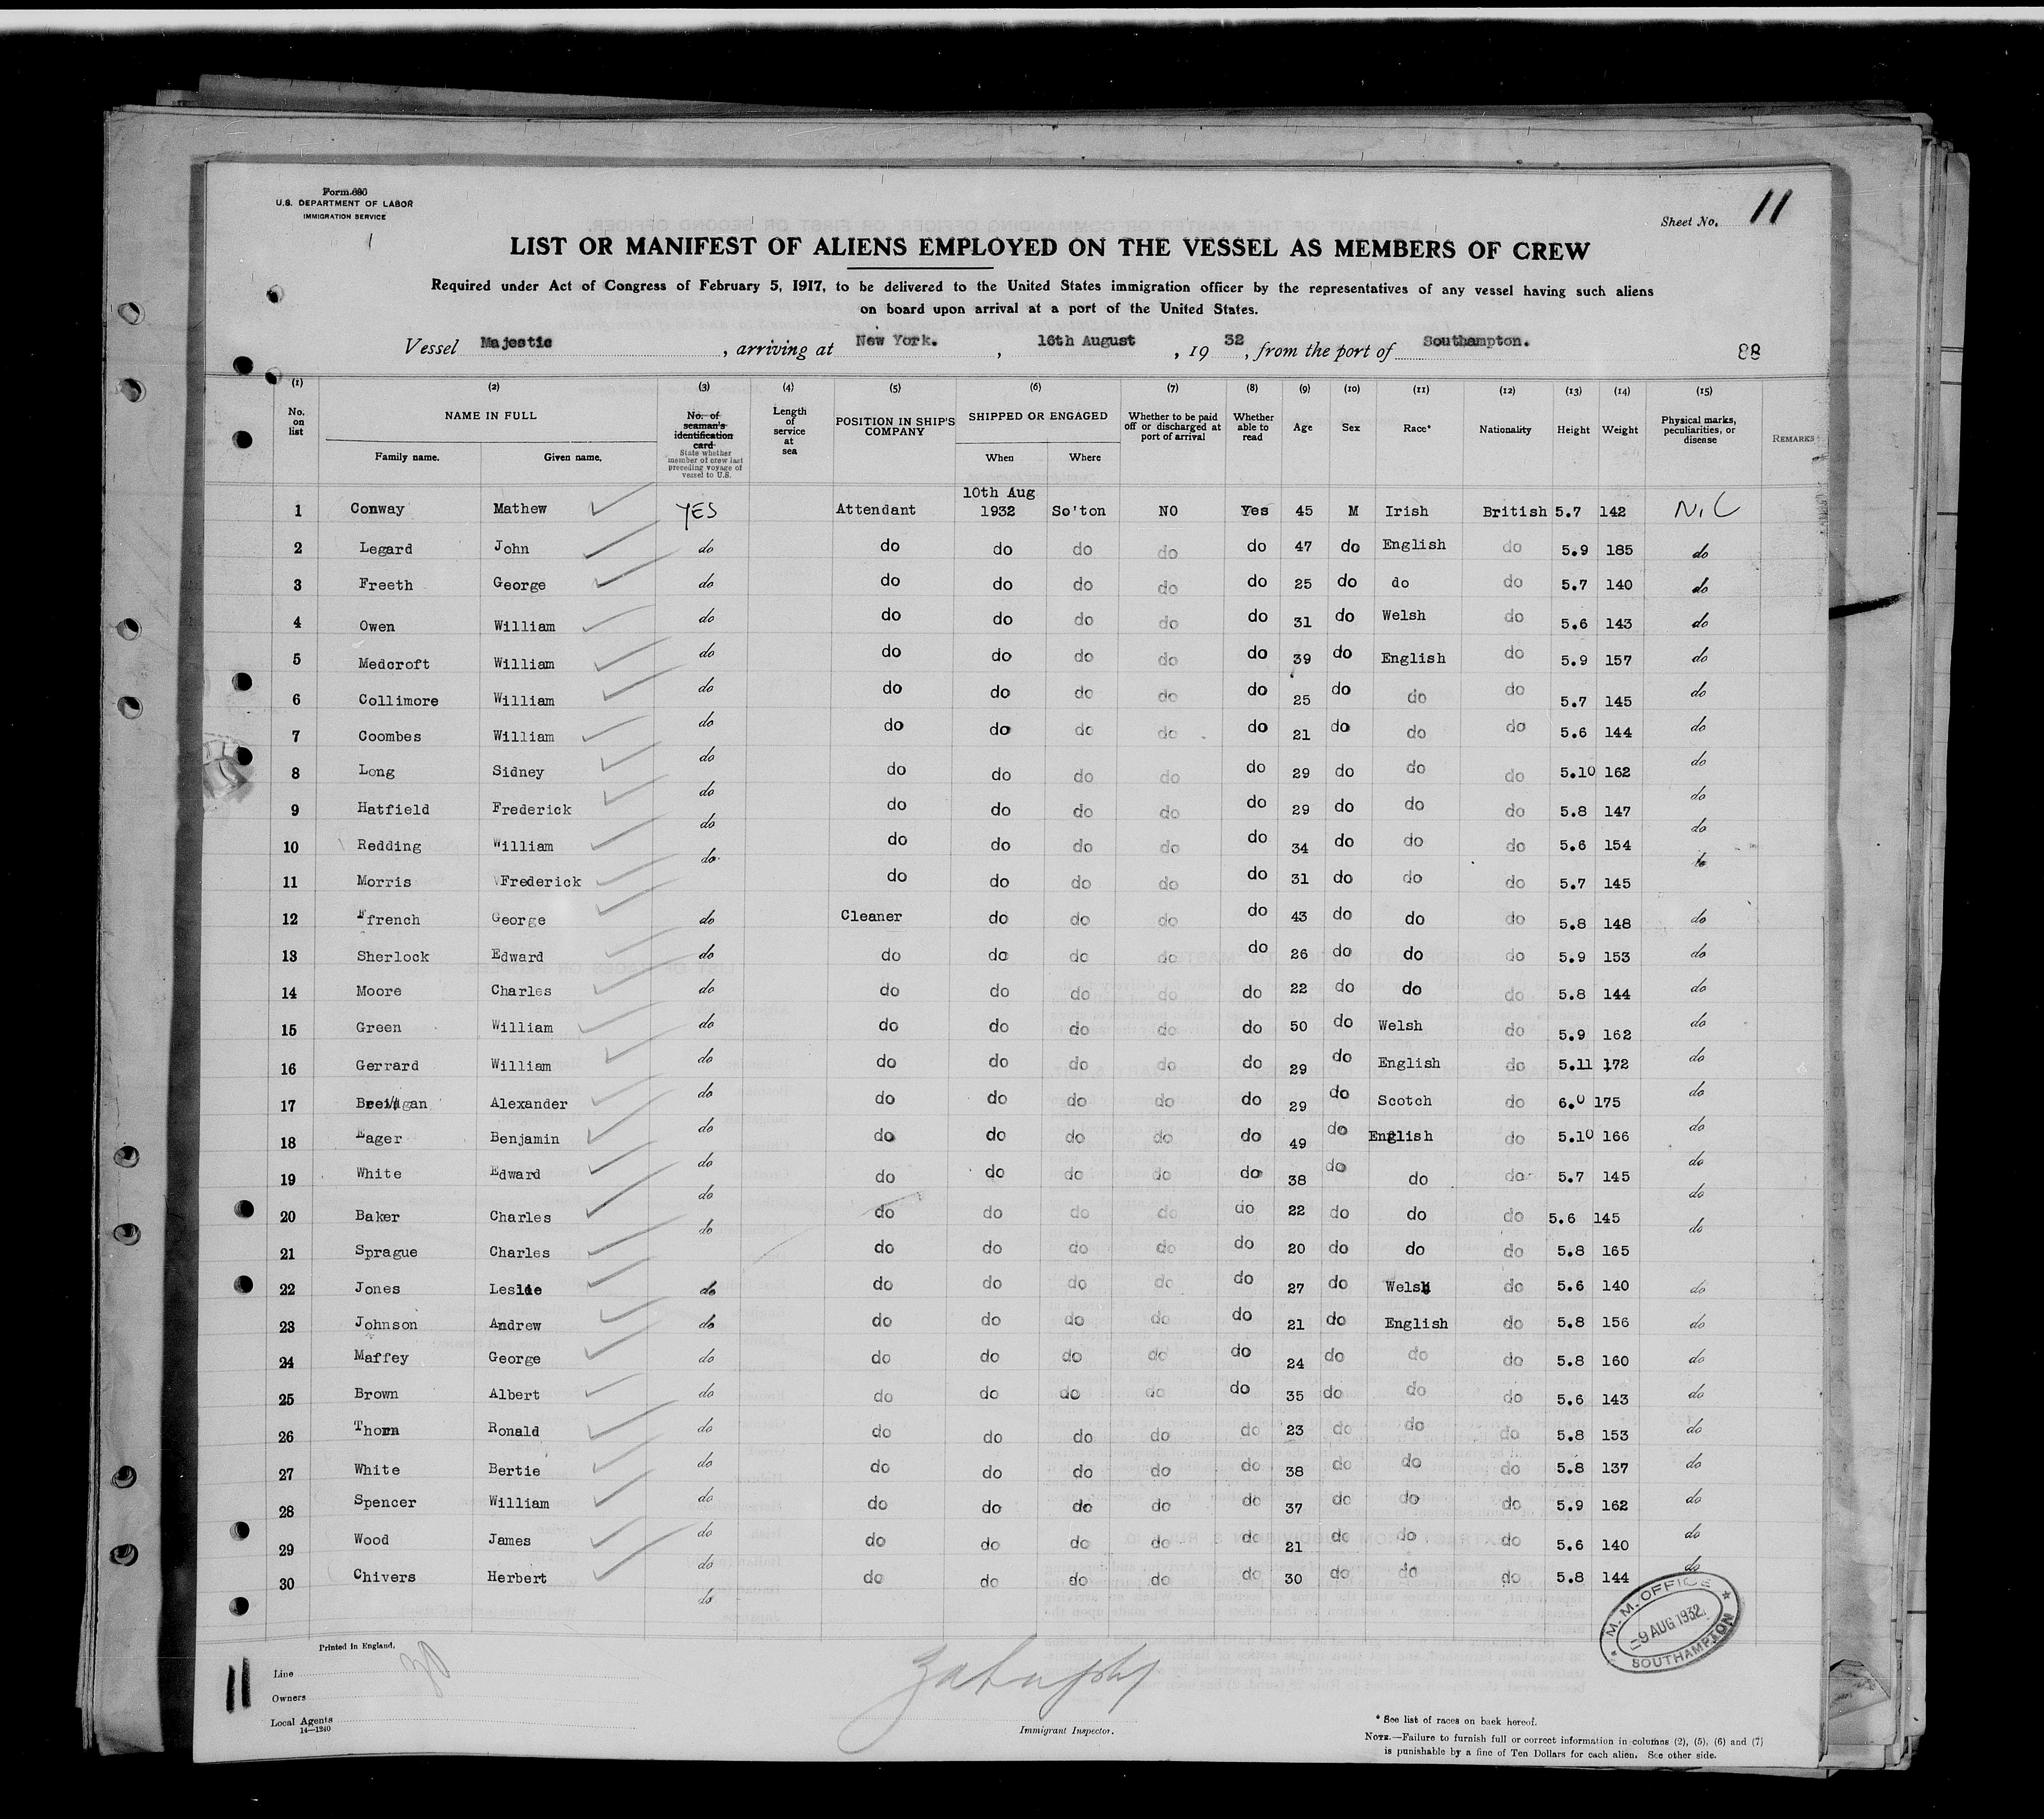 Form 680
U.S. DEPARTMENT OF LABOR
IMMIGRATION SERVICE
Sheet No. 11
LIST OR MANIFEST OF ALIENS EMPLOYED ON THE VESSEL AS MEMBERS OF CREW
Required under Act of Congress of February 5, 1917, to be delivered to the United States immigration officer by the representatives of any vessel having such aliens
on board upon arrival at a port of the United States.
Vessel Majestic , arriving at New York. , 16th August , 19 32 , from the port of Southampton. 88
(1) (2) (3) (4) (5) (6) (7) (8) (9) (10) (11) (12) (13) (14) (15)
No. on list NAME IN FULL Family name. Given name. No. of seaman's identification card. State whether member of crew last preceding voyage of vessel to U.S. Length of service at sea POSITION IN SHIP'S COMPANY SHIPPED OR ENGAGED When Where Whether to be paid off or discharged at port of arrival Whether able to read Age Sex Race* Nationality Height Weight Physical marks, peculiarities, or disease REMARKS
1 Conway Mathew YES Attendant 10th Aug 1932 So'ton NO Yes 45 M Irish British 5.7 142 N.C
2 Legard John do do do do do do 47 do English do 5.9 185 do
3 Freeth George do do do do do do 25 do do do 5.7 140 do
4 Owen William do do do do do do 31 do Welsh do 5.6 143 do
5 Medcroft William do do do do do do 39 do English do 5.9 157 do
6 Collimore William do do do do do do 25 do do do 5.7 145 do
7 Coombes William do do do do do do 21 do do do 5.6 144 do
8 Long Sidney do do do do do do 29 do do do 5.10 162 do
9 Hatfield Frederick do do do do do do 29 do do do 5.8 147 do
10 Redding William do do do do do do 34 do do do 5.6 154 do
11 Morris Frederick do do do do do do 31 do do do 5.7 145 do
12 Ffrench George do Cleaner do do do do 43 do do do 5.8 148 do
13 Sherlock Edward do do do do do do 26 do do do 5.9 153 do
14 Moore Charles do do do do do do 22 do do do 5.8 144 do
15 Green William do do do do do do 50 do Welsh do 5.9 162 do
16 Gerrard William do do do do do do 29 do English do 5.11 172 do
17 Alexander do do do do do do 29 do Scotch do 6.0 175 do
18 Eager Benjamin do do do do do do 49 do English do 5.10 166 do
19 White Edward do do do do do do 38 do do do 5.7 145 do
20 Baker Charles do do do do do do 22 do do do 5.6 145 do
21 Sprague Charles do do do do do do 20 do do do 5.8 165 do
22 Jones Leslie do do do do do do 27 do Welsh do 5.6 140 do
23 Johnson Andrew do do do do do do 21 do English do 5.8 156 do
24 Maffey George do do do do do do 24 do do do 5.8 160 do
25 Brown Albert do do do do do do 35 do do do 5.6 143 do
26 Thorn Ronald do do do do do do 23 do do do 5.8 153 do
27 White Bertie do do do do do do 38 do do do 5.8 137 do
28 Spencer William do do do do do do 37 do do do 5.9 162 do
29 Wood James do do do do do do 21 do do do 5.6 140 do
30 Chivers Herbert do do do do do do 30 do do do 5.8 144 do
do
M.M. OFFICE
-9 AUG 1932
SOUTHAMPTON
Printed in England.
11
Line
Owners
Local Agents
14—1240
Immigrant Inspector.
* See list of races on back hereof.
NOTE.—Failure to furnish full or correct information in columns (2), (5), (6) and (7)
is punishable by a fine of Ten Dollars for each alien. See other side.